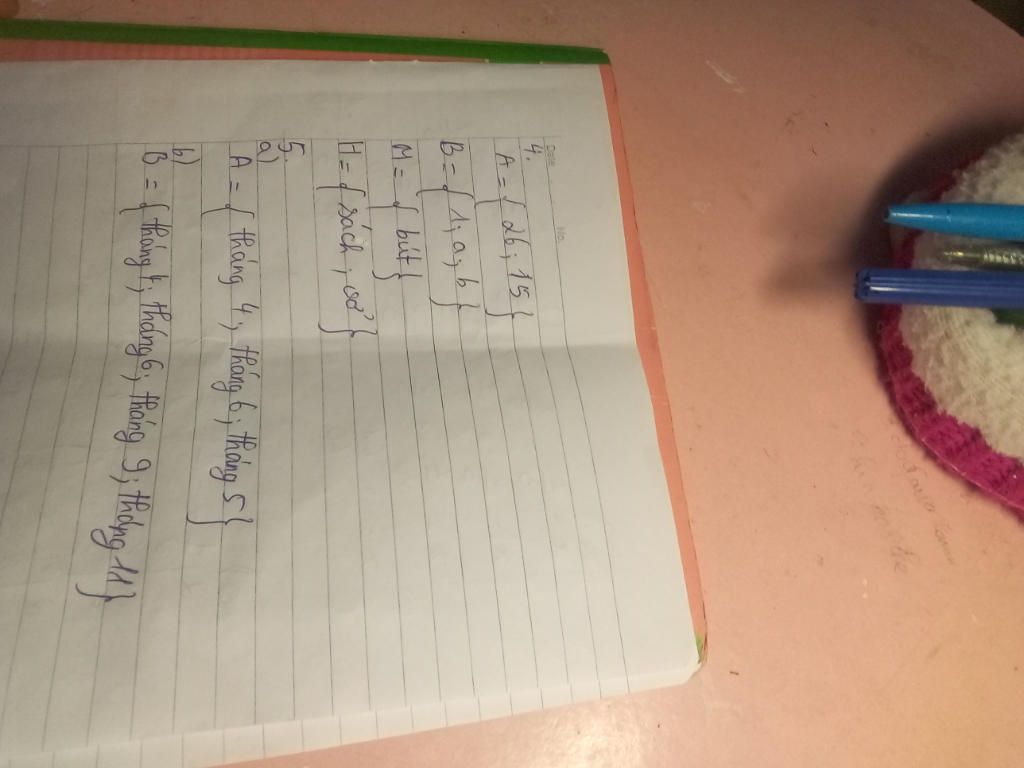 Date No.
4.
A = { 26 ; 15 }
B = { 1 ; a ; b }
M = { bút }
H = { sách ; vở }
5.
a)
A = { tháng 4 ; tháng 6 ; tháng 5 }
b)
B = { tháng 4 ; tháng 6 ; tháng 9 ; tháng 11 }